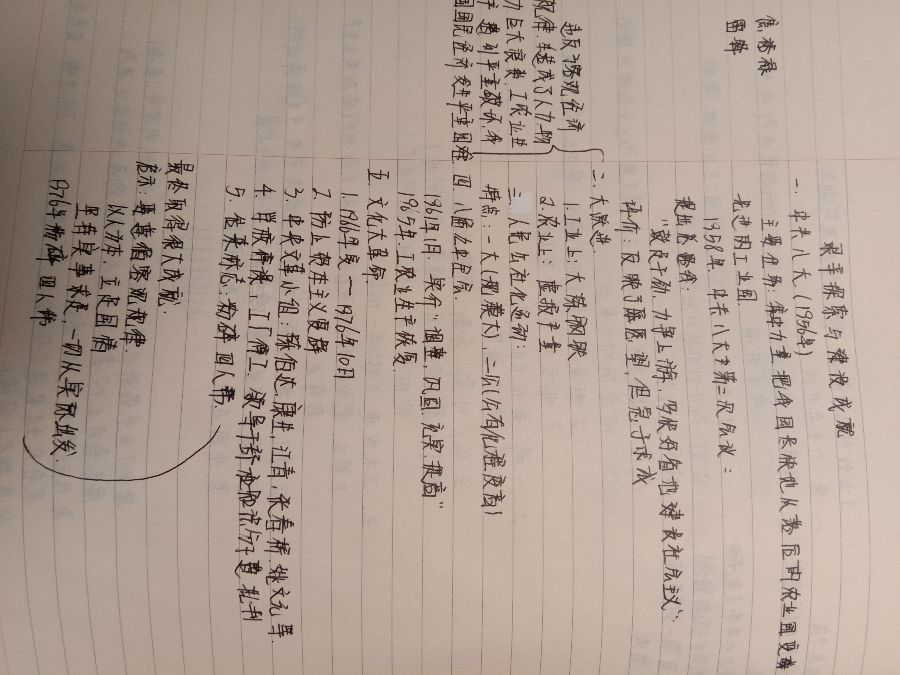 艰辛探索与建设成就
一、中共八大(1956年)
主要任务:集中力量把我国尽快地从落后的农业国变为
先进的工业国
1958年,中共八大第二次会议:
提出总路线:
“鼓足干劲、力争上游、多快好省地建设社会主义”
评价:反映了愿望,但急于求成
二、大跃进
1.工业上:大炼钢铁
2.农业上:虚报产量
三、人民公社化运动:
特点:一大(规模大),二公(公有化程度高)
四、八届九中全会
1961年1月,实行“调整、巩固、充实、提高”
1965年,工农业生产恢复
五、文化大革命
1. 1966年夏—1976年10月
2. 防止资本主义复辟
3. 中央文革小组:陈伯达,康生,江青,张春桥,姚文元等
4. 学校停课,工厂停工,领导干部、知识分子遭批斗
5. 粉碎四人帮.
最终取得很大成就:
启示:尊重客观规律
以人为本,立足国情
坚持实事求是,一切从实际出发.
1976年粉碎四人帮
焦裕禄
违反了客观经济
规律,造成了人力物
力巨大浪费,工农业生
产遭到严重破坏,我
国国民经济发生严重困难